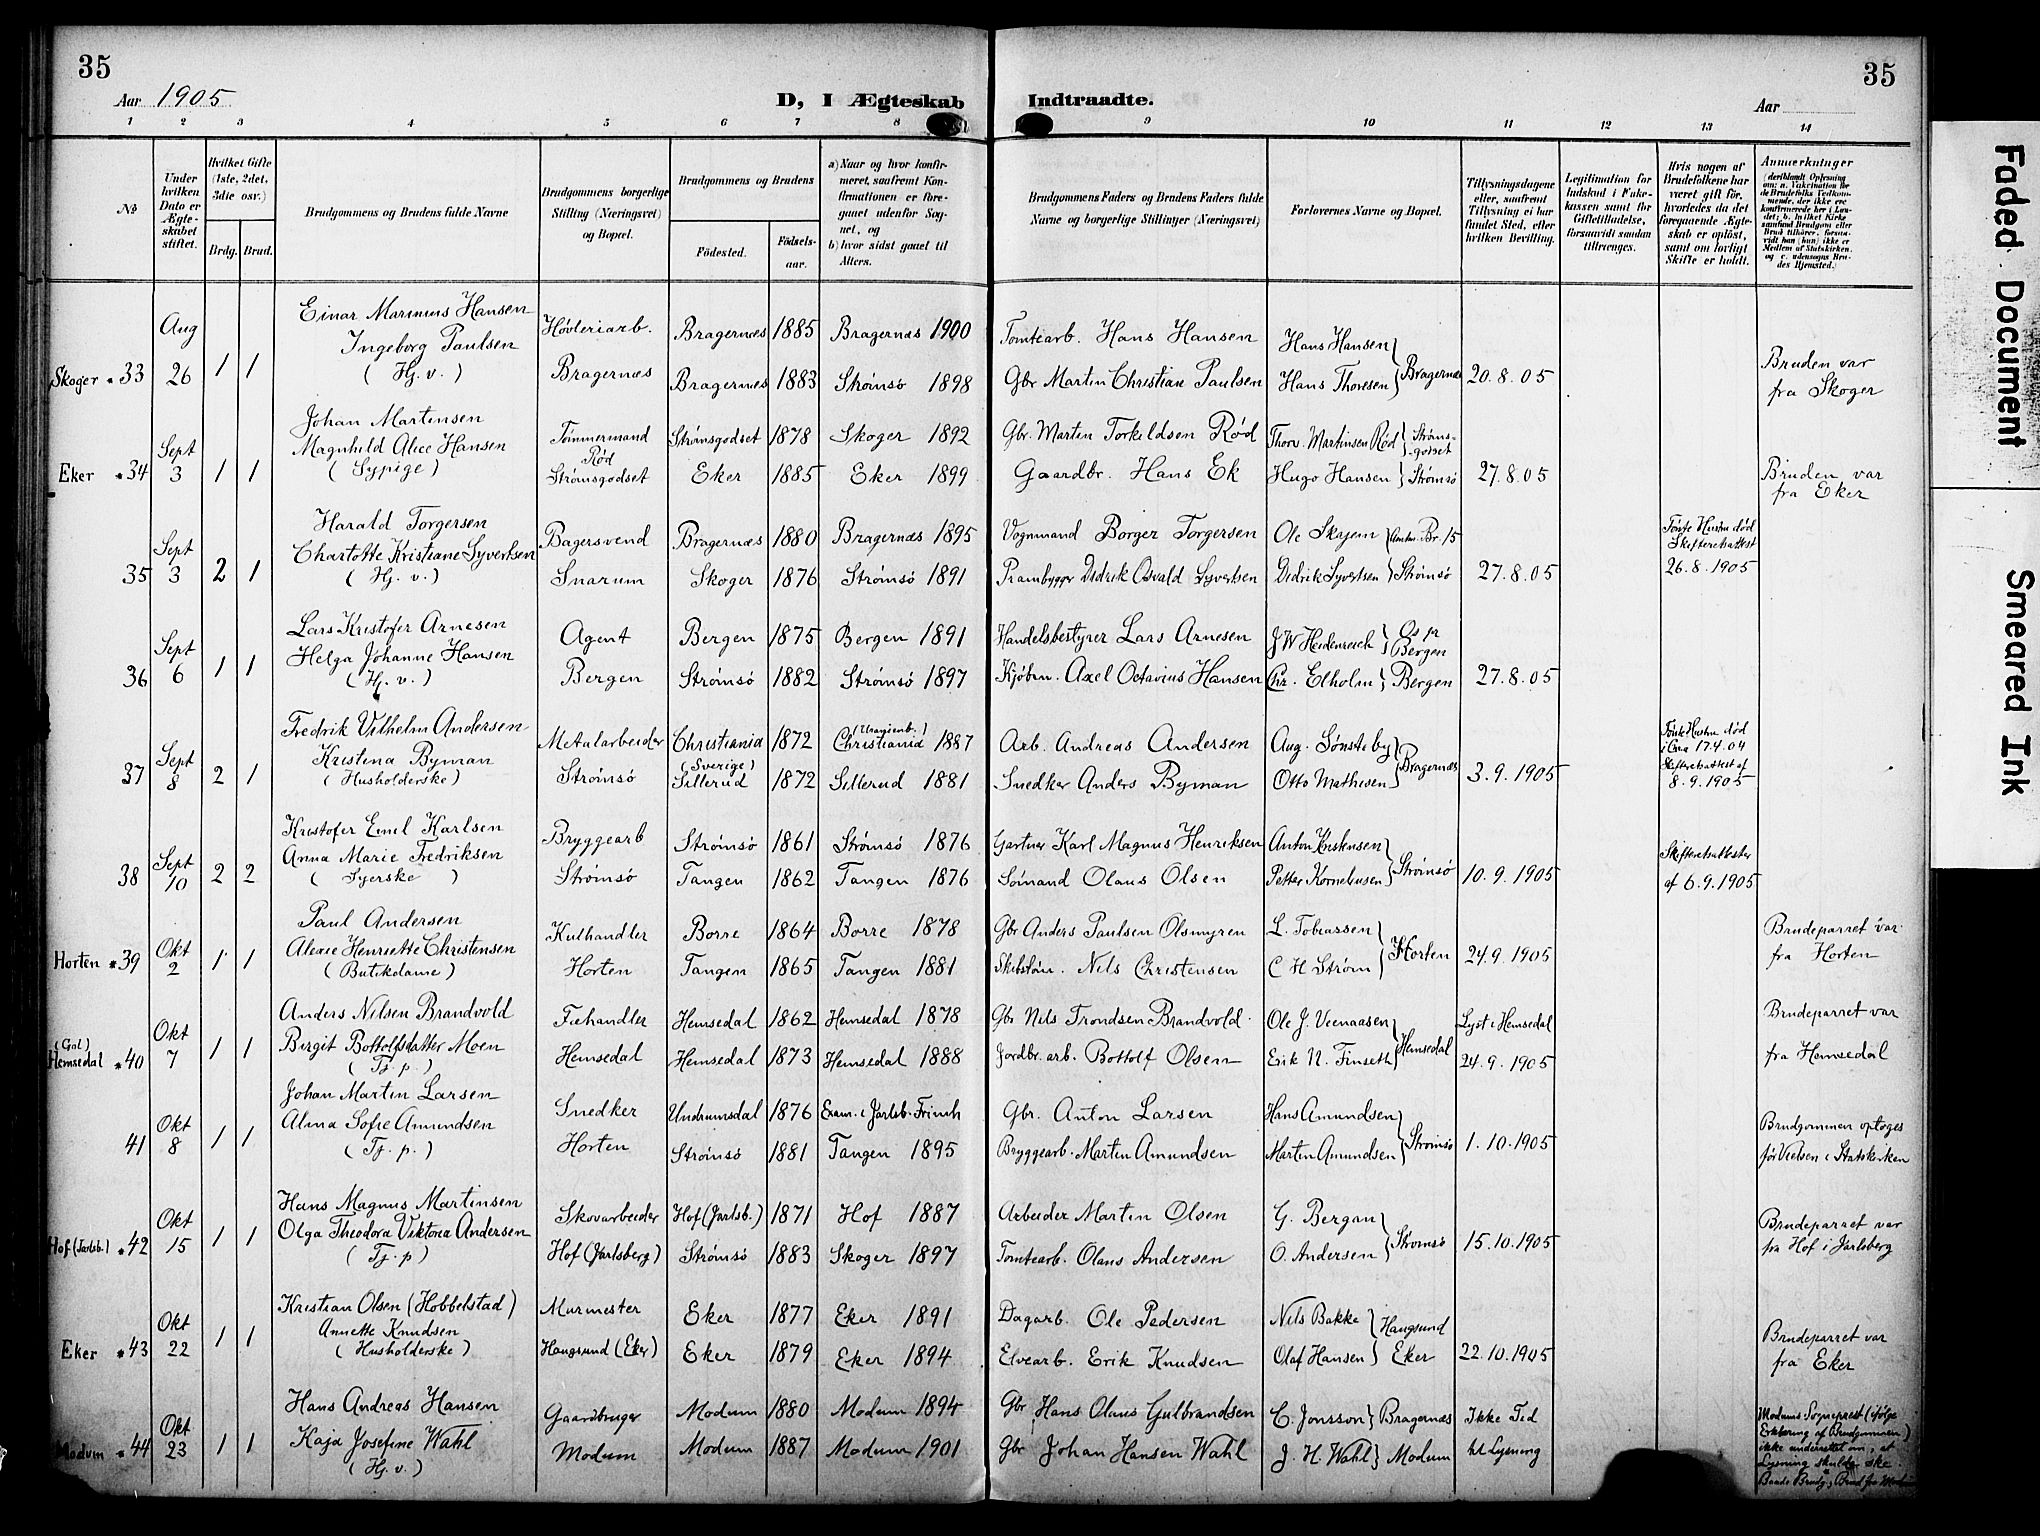 35
35
Aar 1905
D, I Ægteskab Indtraadte.
Aar
1 2 3 4 5 6 7 8 9 10 11 12 13 14
No
Under hvilken Dato er Ægteskabet stiftet.
Hvilket Gifte (1ste, 2det, 3die osv.)
Brdg. Brud.
Brudgommens og Brudens fulde Navne
Brudgommens borgerlige Stilling (Næringsvei) og Bopæl.
Brudgommens og Brudens
Fødested.
Fødselsaar.
a) Naar og hvor konfirmeret, saafremt Konfirmationen er foregaaet udenfor Sognet, og
b) hvor sidst gaaet til Alters.
Brudgommens Faders og Brudens Faders fulde Navne og borgerlige Stillinger (Næringsvei)
Forlovernes Navne og Bopæl.
Tillysningsdagene eller, saafremt Tillysning ei har fundet Sted, efter hvilken Bevilling.
Legitimation for Indskud i Enkekassen samt for Giftetilladelse, forsaavidt saadan tiltrænges.
Hvis nogen af Brudefolkene har været gift før, hvorledes da det foregaaende Ægteskab er opløst, samt om lovligt Skifte er holdt.
Anmerkninger
Skoger * 33 Aug 26 1 1
Einar Marinius Hansen
Ingeborg Paulsen
( Hj. v. )
Høvleriarb.
Bragernæs
Bragernæs 1885 Bragernæs 1900
Bragernæs 1883 Strømsö 1898
Tomtearb. Hans Hansen
Gbr Martin Christian Paulsen
Hans Hansen
Hans Thoresen } Bragernæs
20.8.05
Bruden var
fra Skoger
Eker * 34 Sept 3 1 1
Johan Martinsen
Magnhild Alice Hansen
( Sypige )
Tömmermand
Rød
Strømsgodset
Strømsgodset 1878 Skoger 1892
Eker 1885 Eker 1899
Gbr. Martin Torkildsen Rød
Gaardbr. Hans Ek
Thorv. Martinsen Rød } Strømsgodset
Hugo Hansen } Strømsö
27.8.05
Bruden var
fra Eker
35 Sept 3 2 1
Harald Torgersen
Charlotte Kristiane Syvertsen
( Hj. v. )
Bagersvend
Snarum
Bragernæs 1880 Bragernæs 1895
Skoger 1876 Strömsö 1891
Vognmand Borger Torgersen
Prambygger Didrik Osvald Syvertsen
Ole Skajem
Didrik Syvertsen } Strømsö
27.8.05
Første Hustru död
Skifteretsattest
26.8.1905
36 Sept 6 1 1
Lars Kristofer Arnesen
Helga Johanne Hansen
( Hj. v. )
Agent
Bergen
Bergen 1875 Bergen 1891
Strömsö 1882 Strömsö 1897
Handelsbestyrer Lars Arnesen
Kjøbm. Axel Octavius Hansen
J W Heidenreich } Os pr Bergen
Chr. Elholm } Bergen
27.8.05
37 Sept 8 2 1
Fredrik Vilhelm Andersen
Kristina Byman
( Husholderske )
Metalarbeider
Strømsö
Christiania 1872 Christiania 1887
(Sverige)
Sillerud 1872 Sillerud 1881
Arb. Andreas Andersen
Snedker Anders Byman
Aug. Sønsteby
Otto Mathisen } Bragernæs
3.9.1905
Første Hustru död
i Cra 17.4.04
Skifteretsattest af
8.9.1905
38 Sept 10 2 2
Kristofer Emil Karlsen
Anna Marie Fredriksen
( Syerske )
Bryggearb
Strømsö
Strømsö 1861 Strømsö 1876
Tangen 1862 Tangen 1876
Gartner Karl Magnus Henriksen
Sömand Olaus Olsen
Anton Kristensen
Petter Korneliusen } Strømsö
10.9.1905
Skifteretsattester
af 6.9.1905
Horten * 39 Okt 2 1 1
Paul Andersen
Alexie Henriette Christensen
( Butikdame )
Kulhandler
Horten
Borre 1864 Borre 1878
Tangen 1865 Tangen 1881
Gbr Anders Paulsen Olsmyren
Skibstöm. Nils Christensen
L. Tobiassen
C H Strøm } Horten
24.9.1905
Brudeparret var
fra Horten
(Gol)
Hemsedal * 40 Okt 7 1 1
Anders Nilsen Brandvold
Birgit Bottolfsdatter Moen
( Tj. p. )
Fæhandler
Hemsedal
Hemsedal 1862 Hemsedal 1878
Hemsedal 1873 Hemsedal 1888
Gbr Nils Trondsen Brandvold
Jordbr. arb. Bottolf Olsen
Ole J. Veenaasen
Erik N. Finseth } Hemsedal
Lyst i Hemsedal
24.9.1905
Brudeparret var
fra Hemsedal
41 Okt 8 1 1
Johan Martin Larsen
Alma Sofie Amundsen
( Tj. p. )
Snedker
Horten
Undrumsdal 1876 Exam. i Jarlsb. Frimh
Strømsö 1881 Tangen 1895
Gbr. Anton Larsen
Bryggearb. Martin Amundsen
Hans Amundsen
Martin Amundsen } Strømsö
1.10.1905
Brudgommen optoges
før Vielsen i Statskirken
Hof (Jarlsb.) * 42 Okt 15 1 1
Hans Magnus Martinsen
Olga Theodora Viktoria Andersen
( Tj. p )
Skovarbeider
Hof (Jarlsberg)
Hof (Jarlsb.) 1871 Hof 1887
Strømsö 1883 Skoger 1897
Arbeider Martin Olsen
Tomtearb. Olaus Andersen
G. Bergan
O. Andersen } Strømsö
15.10.1905
Brudeparret var
fra Hof i Jarlsberg
Eker * 43 Okt 22 1 1
Kristian Olsen (Hobbelstad)
Annette Knudsen
( Husholderske )
Murmester
Haugsund (Eker)
Eker 1877 Eker 1891
Eker 1879 Eker 1894
Dagarb. Ole Pedersen
Elvearb. Erik Knudsen
Nils Bakke } Haugsund
Olaf Hansen } Eker
22.10.1905
Brudeparret var
fra Eker
Modum * 44 Okt 23 1 1
Hans Andreas Hansen
Kaja Josefine Wahl
( Hj. v. )
Gaardbruger
Modum
Modum 1880 Modum 1894
Modum 1887 Modum 1901
Gbr Hans Olaus Gulbrandsen
Gbr Johan Hansen Wahl
C. Jonsson } Bragernæs
J. H. Wahl } Modum
Ikke Tid
til Lysning
Modums Sogneprest (ifølge
Erklæring af Brudgommen)
ikke underrettet om, at
Lysning skulde ske.
Baade Brudg. & Brud fra Modum
Faded Document
Smeared Ink